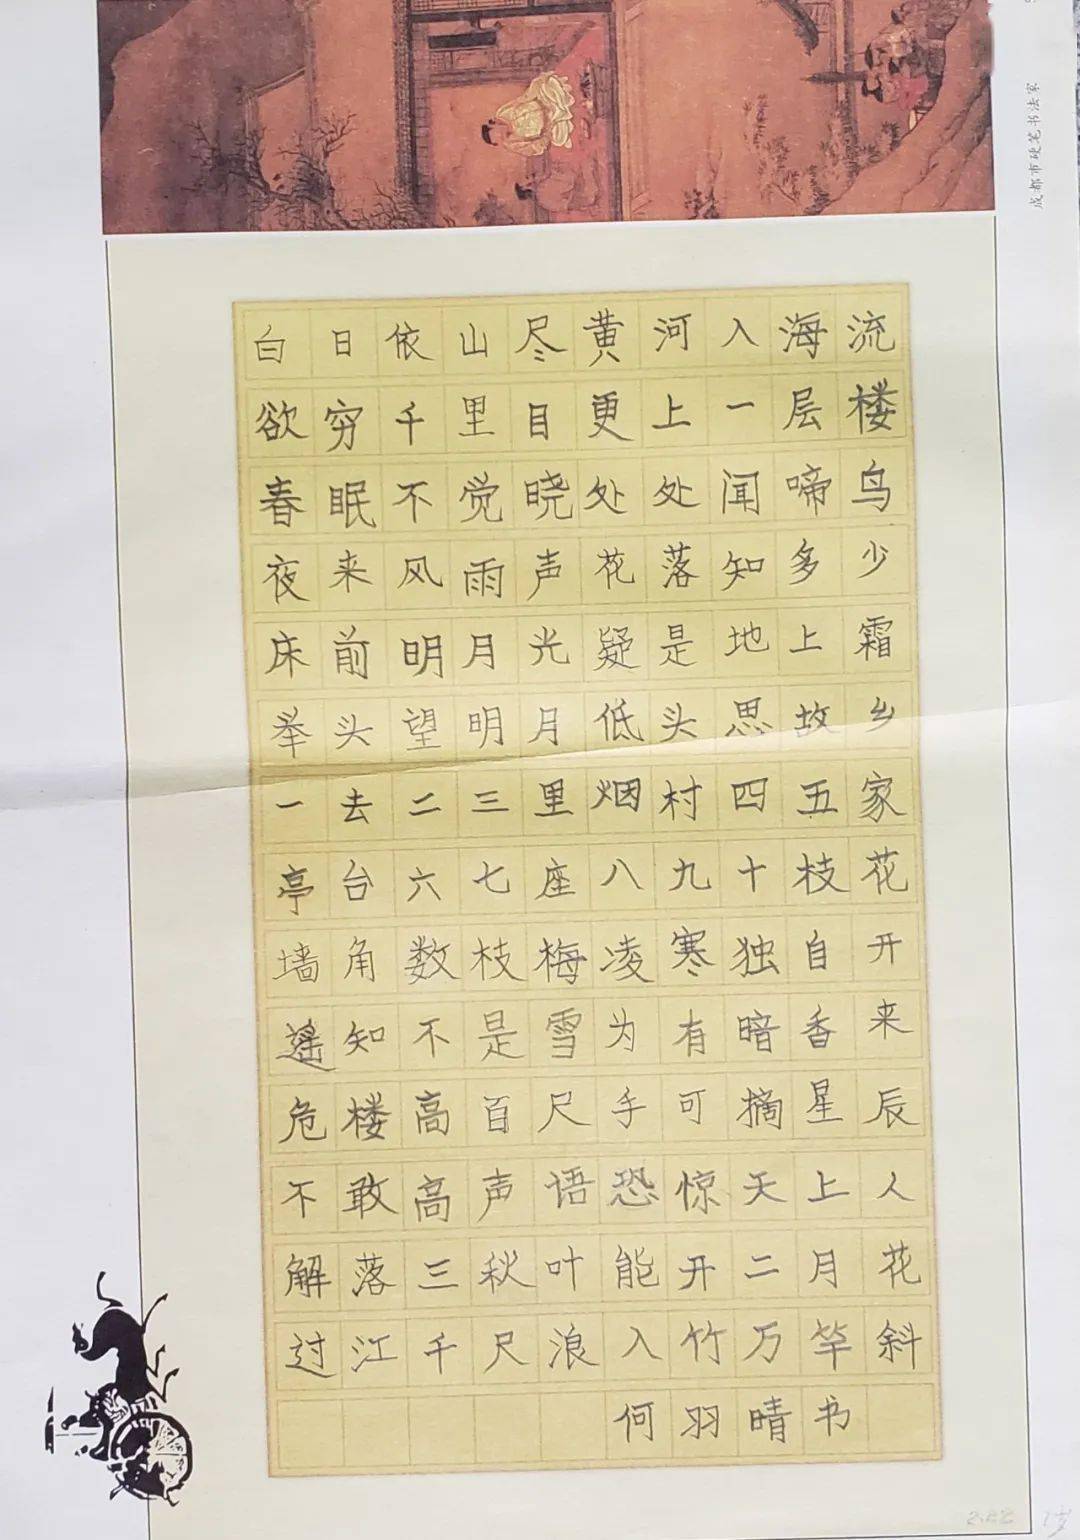 成都市硬笔书法家
白日依山尽黄河入海流
欲穷千里目更上一层楼
春眠不觉晓处处闻啼鸟
夜来风雨声花落知多少
床前明月光疑是地上霜
举头望明月低头思故乡
一去二三里烟村四五家
亭台六七座八九十枝花
墙角数枝梅凌寒独自开
遥知不是雪为有暗香来
危楼高百尺手可摘星辰
不敢高声语恐惊天上人
解落三秋叶能开二月花
过江千尺浪入竹万竿斜
何羽晴书